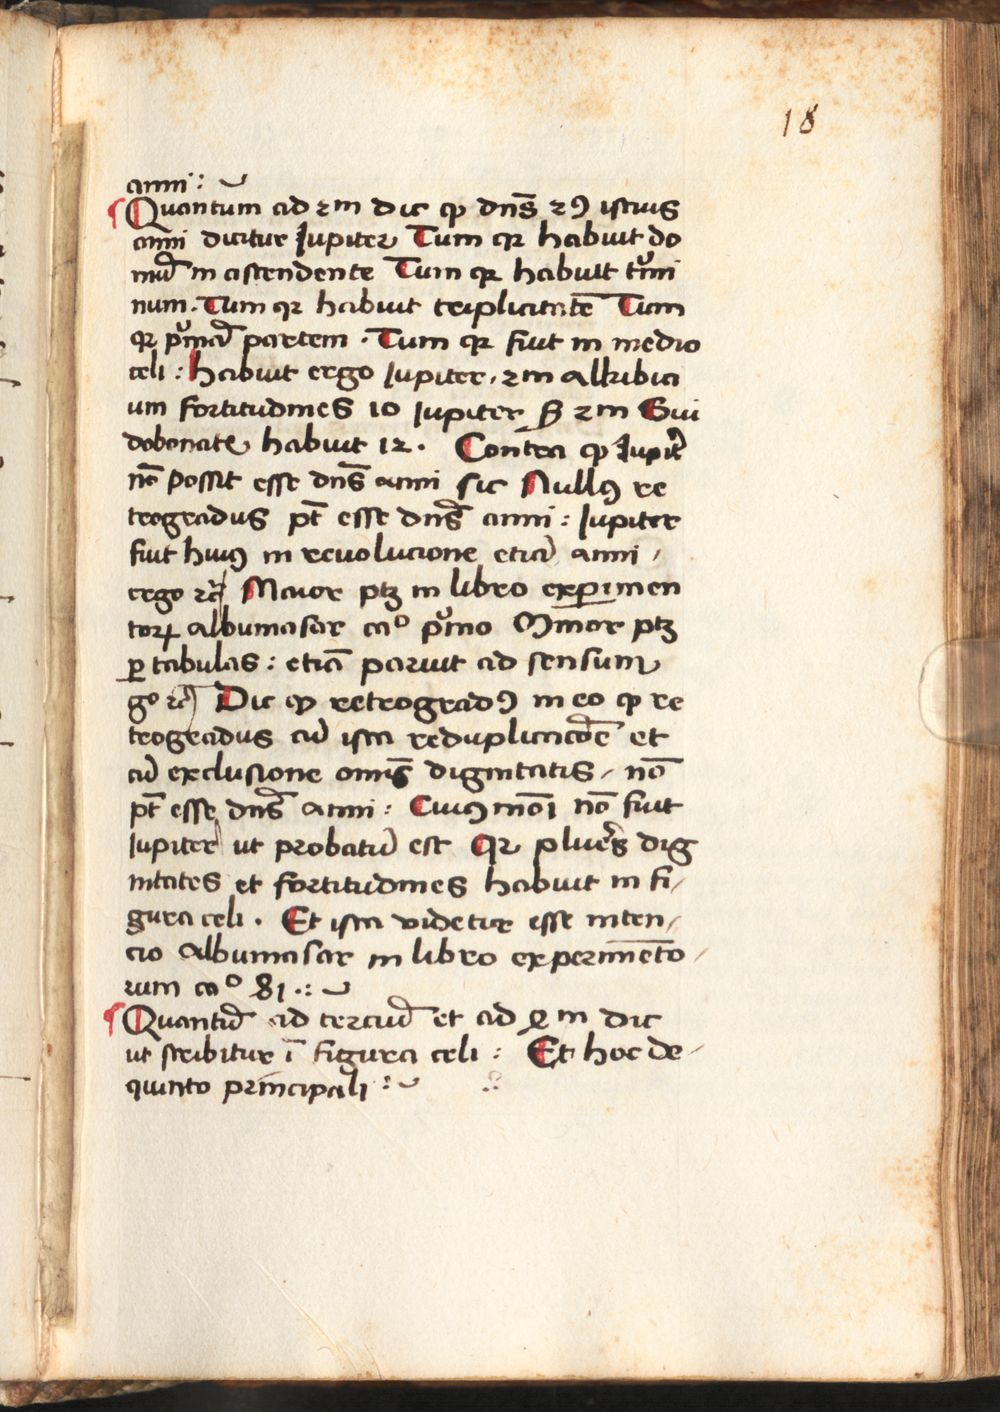 18
anni :
Quantum ad 2m dic ꝙ dn̄s 2ꝰ istius
anni dicitur Jupiter Tum qr habuit do
mū in ascendente Tum qr habuit tᵐi
num. Tum qr habuit triplicitatē Tum
qr pͥmā partem . Tum qr fuit in medio
celi : habuit ergo Jupiter, 2m alkibici
um fortitudines 10 Jupiter 2m Gui
dobonate habuit 12 . Contra ꝙ Jupit̉
nō possit esse dn̄s anni sic Nullꝰ re
trogradus pt̄ esse dn̄s anni : Jupiter
fuit huiꝰ in reuolucione etiā anni /
ergo ⁊c̄ Maior ptꝫ in libro experimen
toꝝ albumasar caᵒ pͥmo Minor ptꝫ
ꝑ tabulas : etiā paruit ad sensum
gᵒ ⁊c̄ Dic ꝙ retrogradꝰ in eo ꝙ re
trogradus cū ista reduplicacōe et
cū exclusione omīs dignitatis / nō
pt̄ esse dn̄s anni : Cuiꝰmōi nō fuit
Jupiter ut probatū est Qr plures dig
nitates et fortitudines habuit in fi/
gura celi . Et ista videtur esse inten/
cio Albumasar in libro experimēto/
rum caᵒ 81 .:
Quantū ad terciū et ad 4m dic
ut scribitur ī figura celi : Et hoc de/
quinto principali :